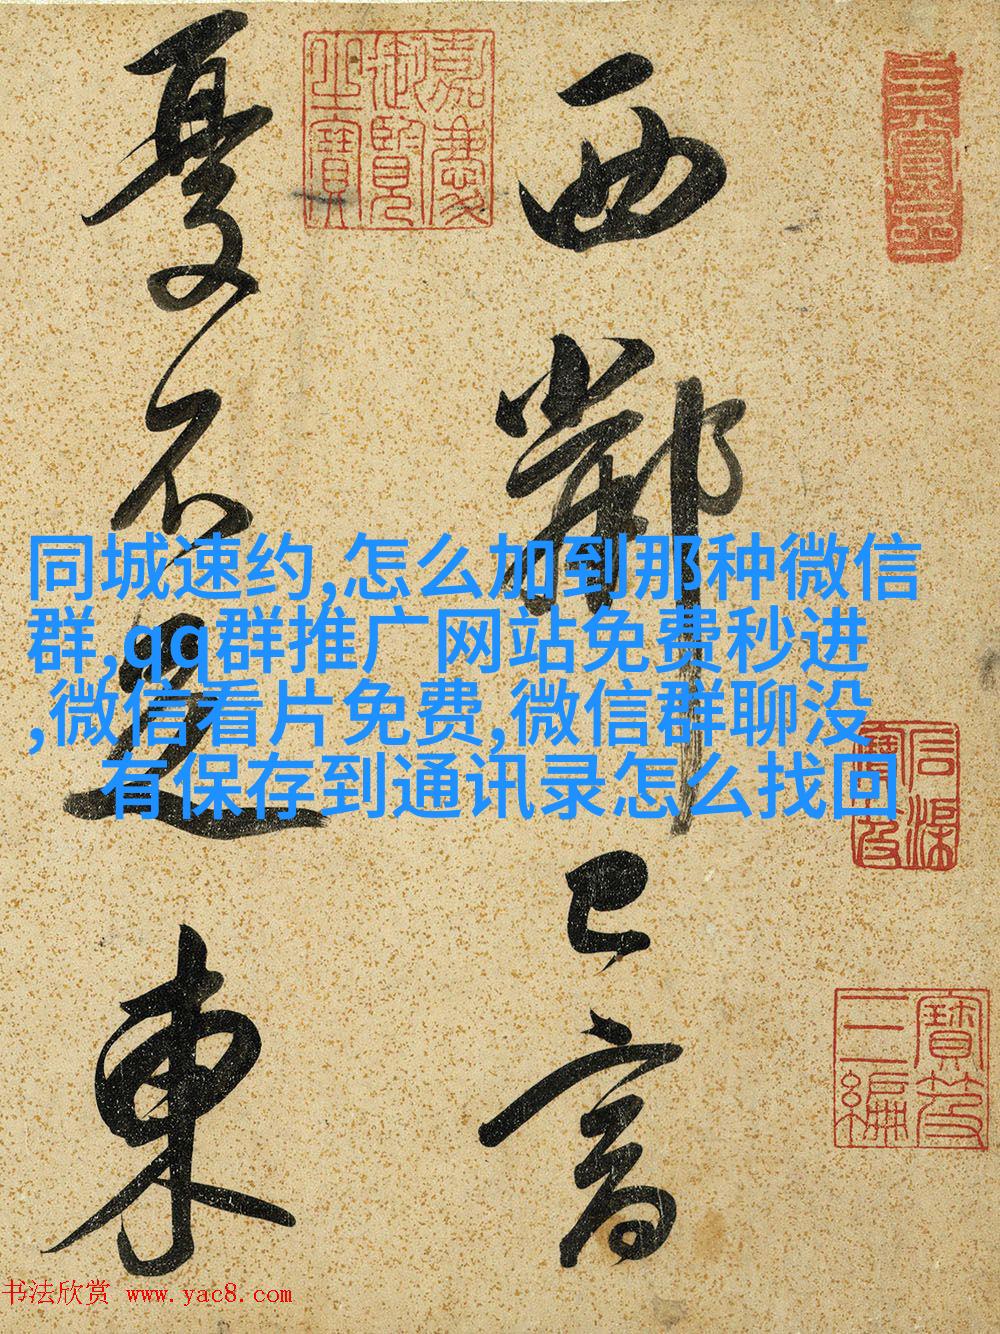 西鄰已富
憂不足東
嘉慶
御覽
之寶
寶笈
三編
同城速约,怎么加到那种微信
群,qq群推广网站免费秒进
,微信看片免费,微信群聊没
有保存到通讯录怎么找回
书法欣赏 www.yac8.com